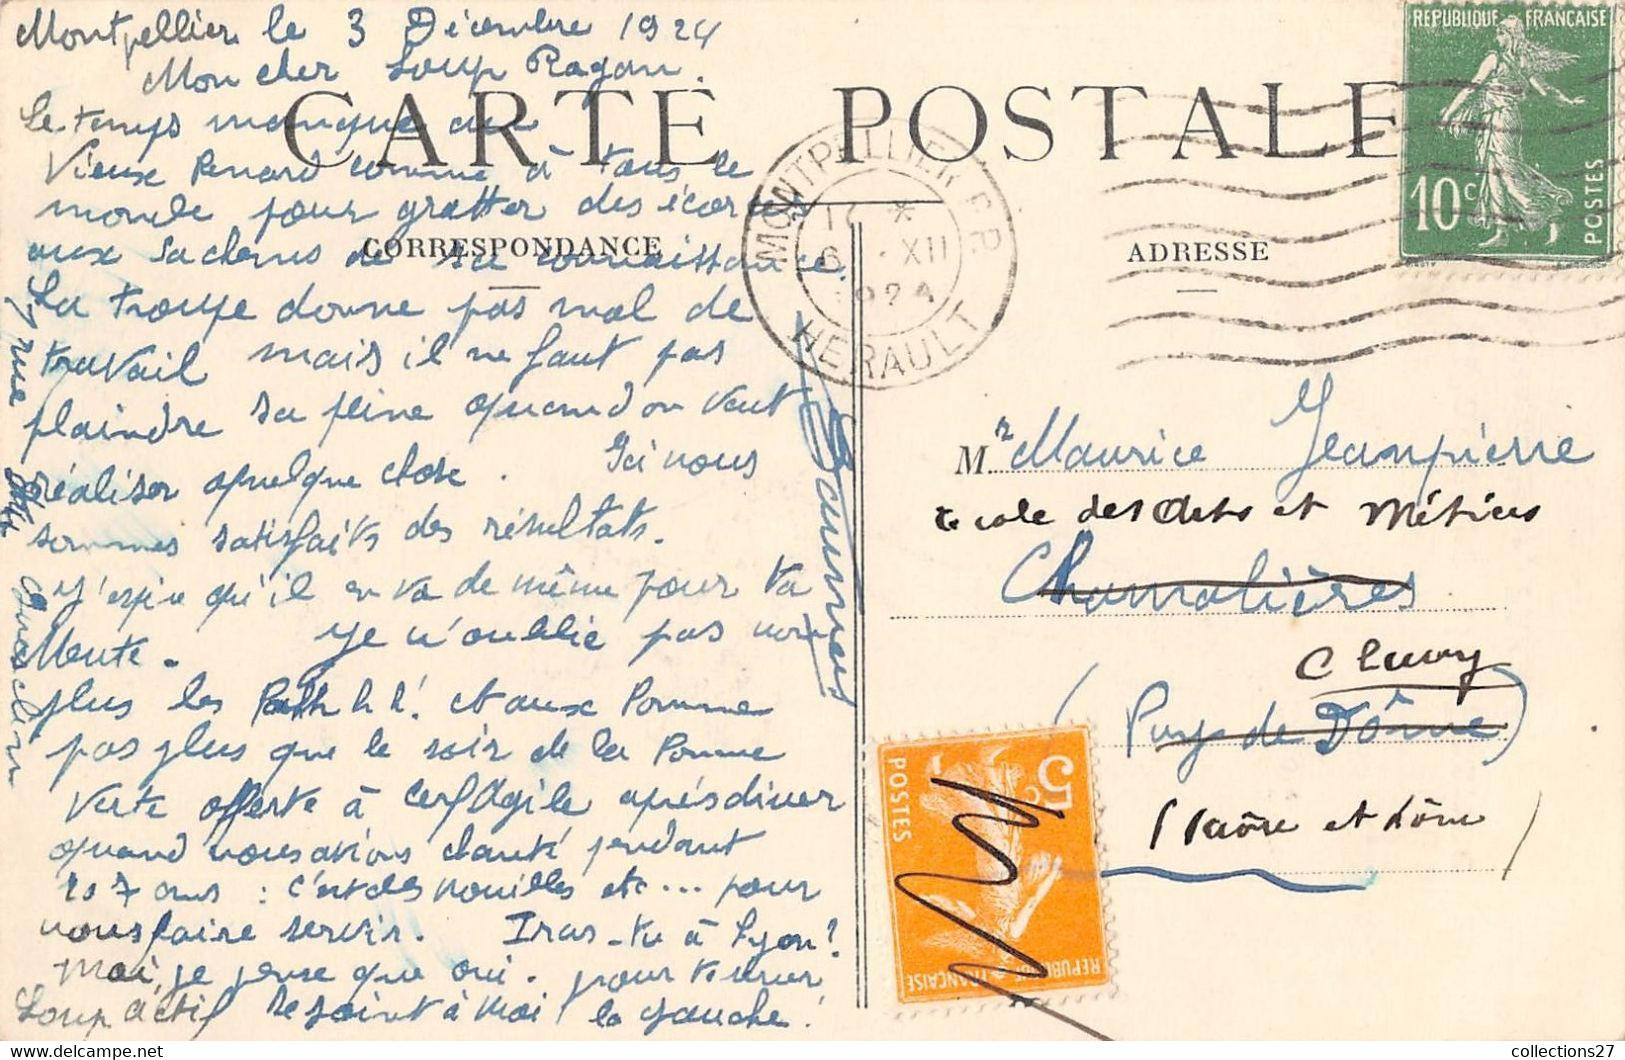 Montpellier le 3 Décembre 1924
Mon cher Loup Ragan.
CARTE POSTALE
Le temps manque au
Vieux Renard comme à tous le
monde pour gratter des écor
aux sachems de sa connaissance.
CORRESPONDANCE
La troupe donne pas mal de
travail mais il ne faut pas
plaindre sa peine quand on veut
réaliser quelque chose. Ici nous
sommes satisfaits des résultats.
J'espère qu'il en va de même pour ta
Meute. Je n'oublie pas non
plus les Path h h! et aux Pomme
pas plus que le soir de la Pomme
Verte offerte à Cerf Agile après diner
quand nous avions chanté pendant
les 7 ans : c'est des nouilles etc... pour
nous faire servir. Iras-tu à Lyon?
Moi, je pense que oui. pour terminer
Loup actif se joint à moi la gauche!
7 rue
MONTPELLIER R.P.
HERAULT
17 *
6 . XII
1924
REPUBLIQUE FRANCAISE
10c
POSTES
ADRESSE
Mr Maurice Jeanpierre
Ecole des Arts et Métiers
Chamalières
Cluny
(Puy de Dôme)
(Saône et Loire)
5c
POSTES
REPUBLIQUE FRANCAISE
collections27